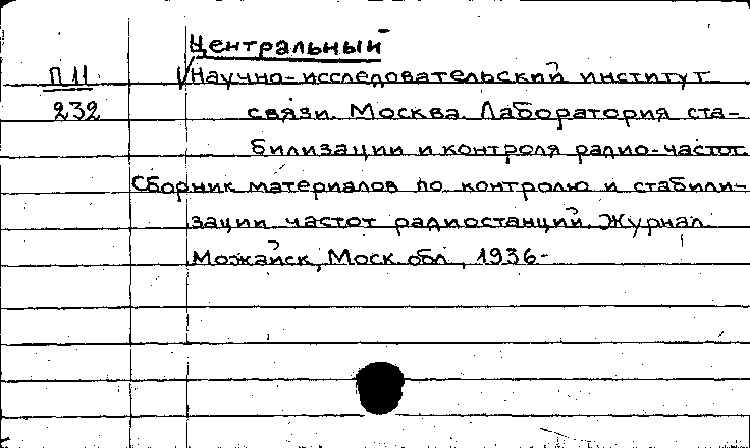 Центральный
П11 Научно-исследовательский институт
232 связи. Москва. Лаборатория ста-
билизации и контроля радио-частот.
Сборник материалов по контролю и стабили-
зации частот радиостанций. Журнал.
Можайск, Моск. обл., 1936-